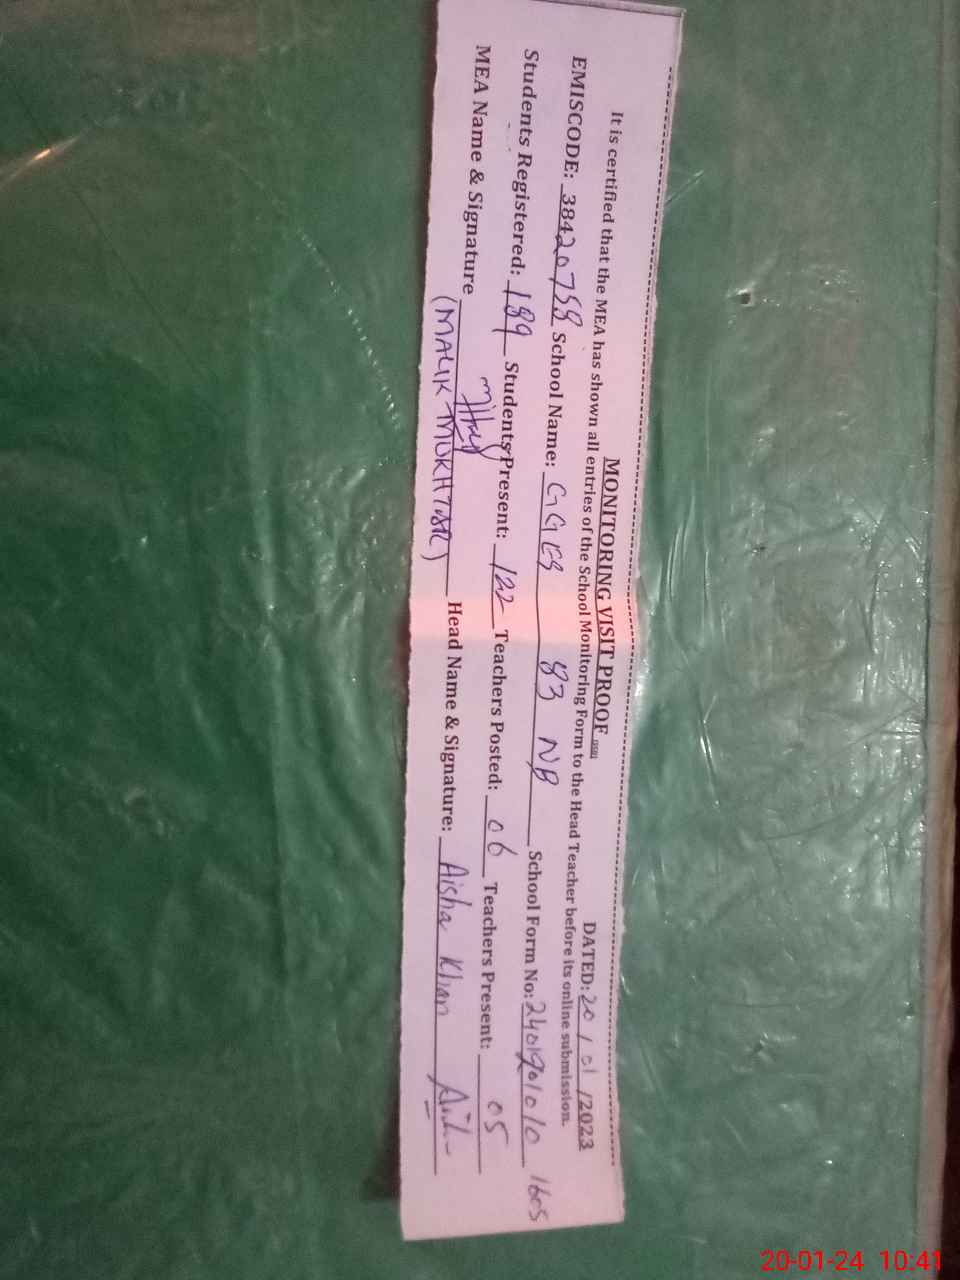 MONITORING VISIT PROOF
DATED: 20 / 01 /2023
It is certified that the MEA has shown all entries of the School Monitoring Form to the Head Teacher before its online submission.
EMISCODE: 38420758 School Name: GGES 83 NB School Form No: 2401901010 1605
Students Registered: 189 Students Present: 122 Teachers Posted: 06 Teachers Present: 05
MEA Name & Signature Head Name & Signature: Aisha Khan
(MALIK MUKHTAR)
20-01-24 10:41